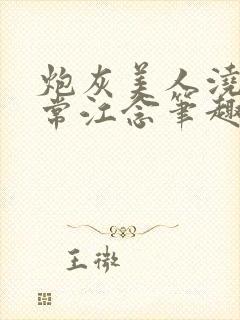 炮灰美人浇
常江念笔趣
王微